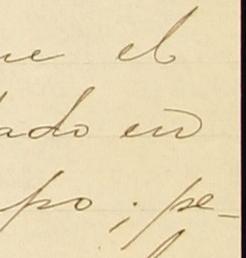 ue el
ado en
po; pe-